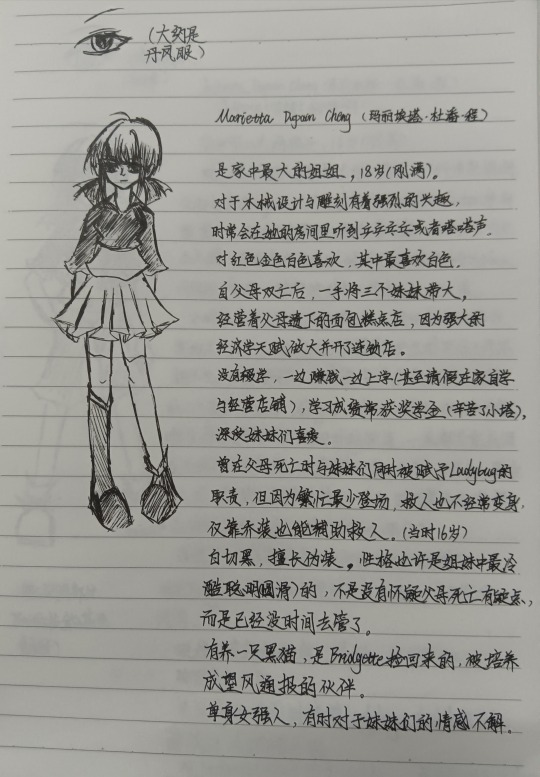 (大约是
丹凤眼)
Marietta Dupain Cheng (玛丽埃塔·杜潘·程)
是家中最大的姐姐，18岁(刚满)。
对于木械设计与雕刻有着强烈的兴趣，
时常会在她的房间里听到乒乒乓乓或者嗒嗒声。
对红色金色白色喜欢，其中最喜欢白色。
自父母双亡后，一手将三个妹妹带大，
经营着父母遗下的面包糕点店，因为强大的
经济学天赋做大并开了连锁店。
没有辍学，一边赚钱一边上学(甚至请假在家自学
与经营店铺)，学习成绩常获奖学金(辛苦了小塔)，
深受妹妹们喜爱。
曾在父母死亡时与妹妹们同时被赋予Ladybug的
职责，但因为繁忙最少登场，救人也不经常变身，
仅靠乔装也能辅助救人。(当时16岁)
白切黑，擅长伪装。性格也许是姐妹中最冷
聪明圆滑)的，不是没有怀疑父母死亡有疑点，
而是已经没时间去管了。
有养一只黑猫，是Bridgette捡回来的，被培养
成望风通报的伙伴。
单身女强人，有时对于妹妹们的情感不解。